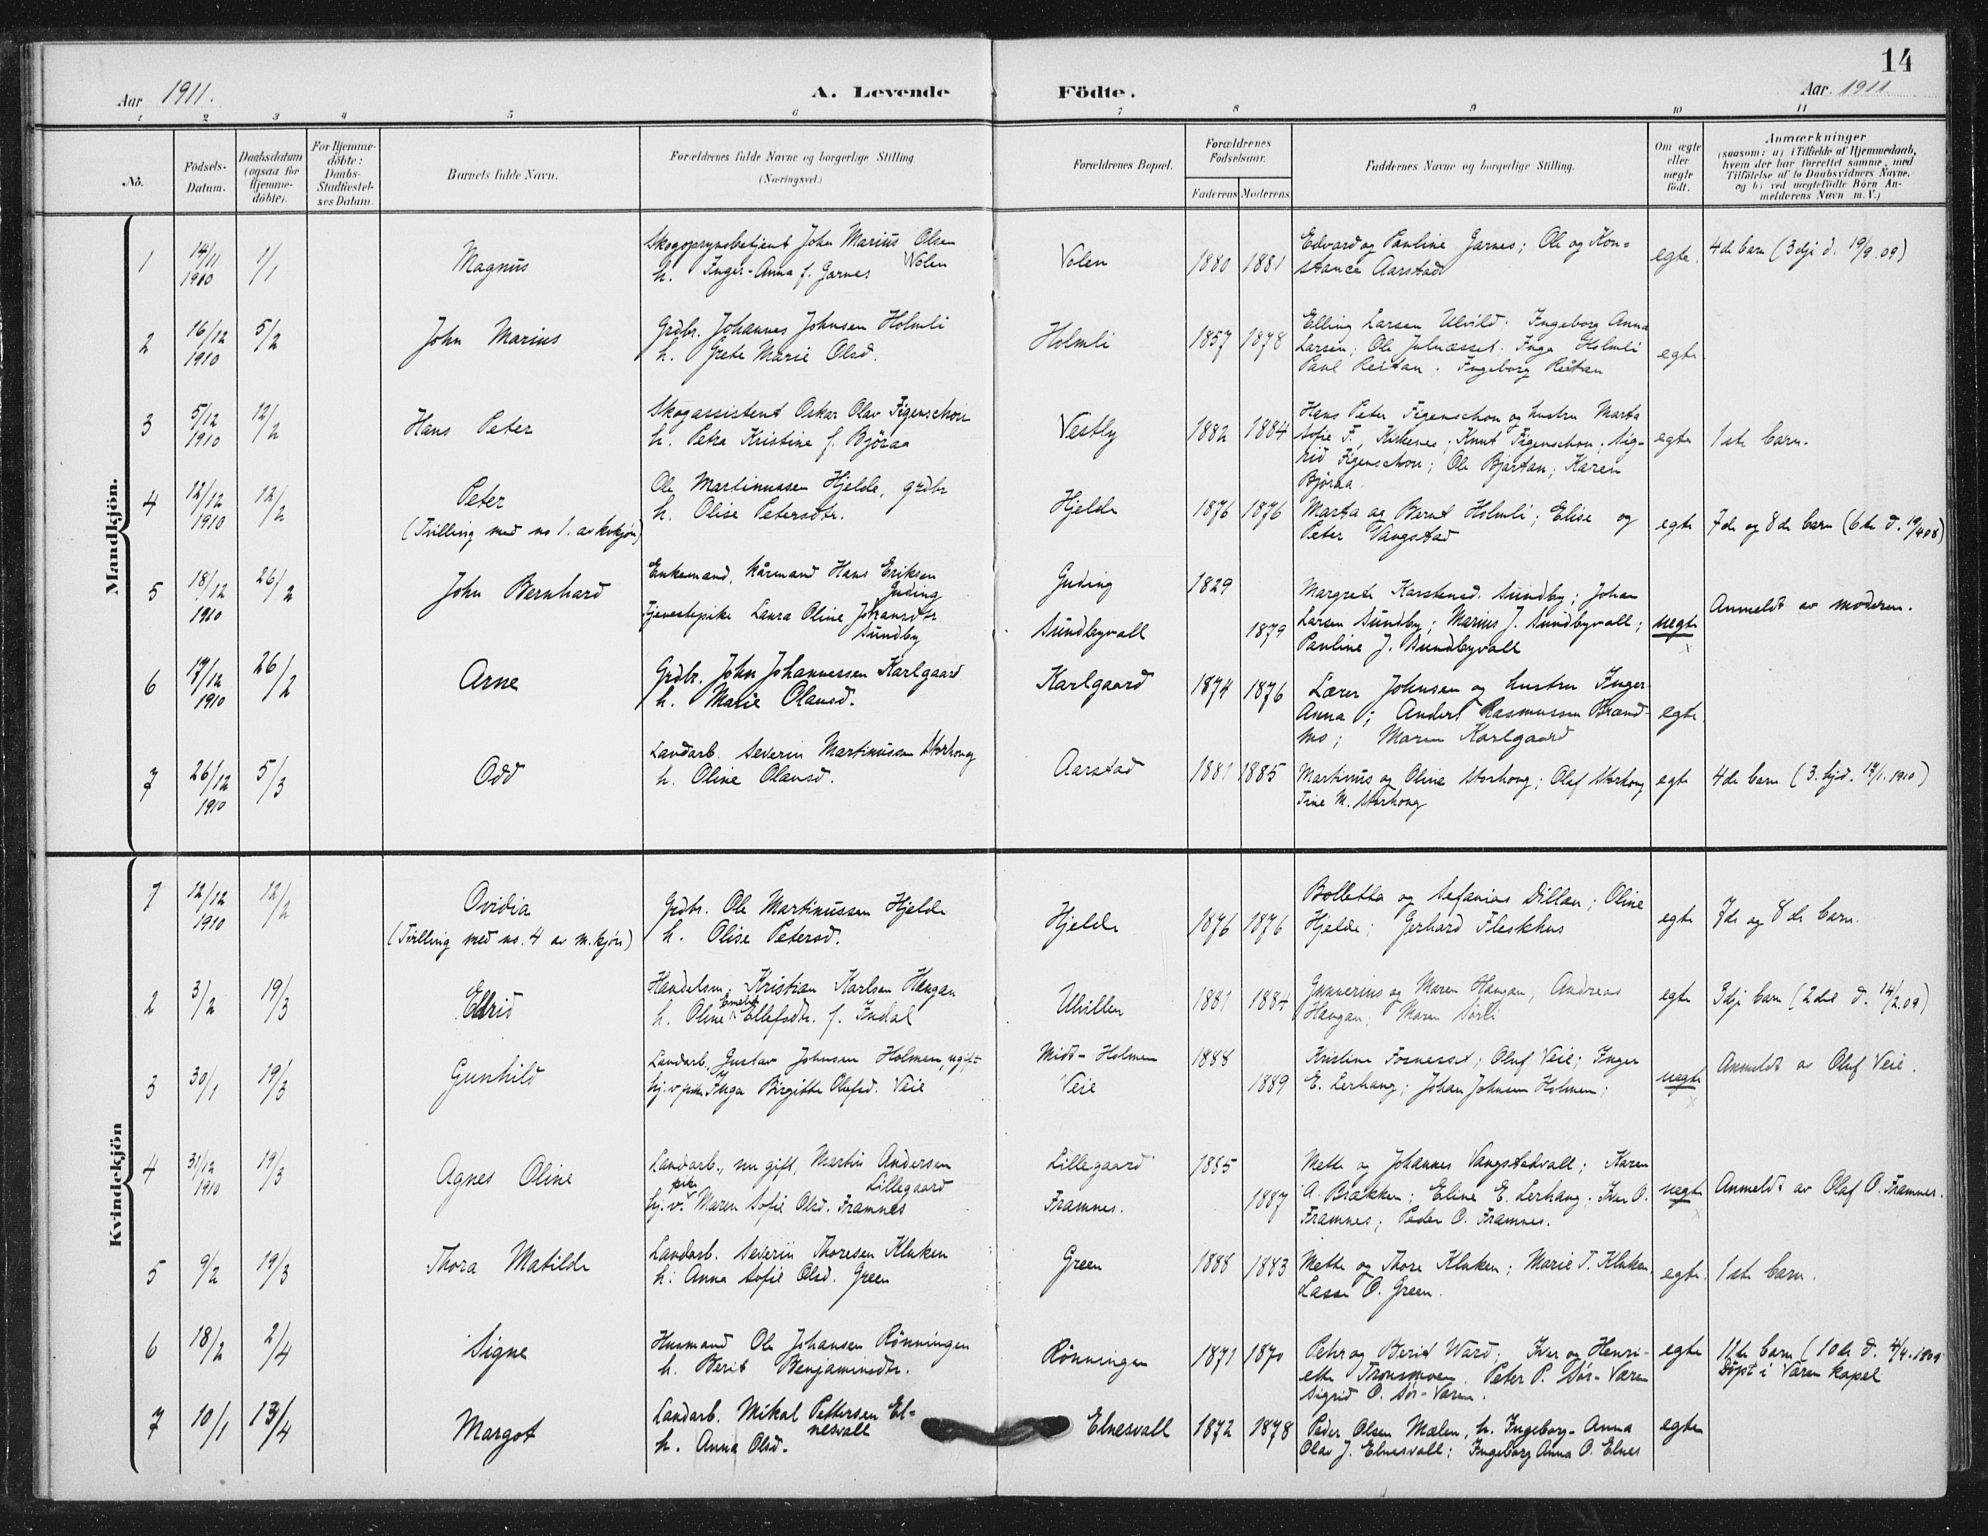 14
Aar 1911. A. Levende Födte. Aar. 1911
1 2 3 4 5 6 7 8 9 10 11
No.
Födsels-Datum.
Daabsdatum (ogsaa for Hjemme-döbte).
For Hjemme-döbte: Daabs-Stadfæstel-ses Datum.
Barnets fulde Navn.
Forældrenes fulde Navne og borgerlige Stilling
(Næringsvei.)
Forældrenes Bopæl.
Forældrenes Födselsaar.
Faderens Moderens
Faddernes Navne og borgerlige Stilling.
Om ægte eller uægte födt.
Anmærkninger
(saasom: a) i Tilfælde af Hjemmedaab,
hvem der har forrettet samme, med
Tilföielse af to Daabsvidners Navne,
og b) ved uægtefödte Börn An-
melderens Navn m. V.)
Mandkjön.
1 14/11 1910 1/1 Magnus
Skogopsynsbetjent John Marius Olsen Volen
h. Inger-Anna f. Garnes
Volen 1880 1881
Edvard og Pauline Garnes; Ole og Kon-
stance Aarstad
egte. 4de barn (3dji d. 19/9.09)
2 16/12 1910 5/2 John Marius
Grdbr. Johannes Johnsen Holmli
h. Grete Marie Olsd.
Holmli 1857 1878
Elling Larsen Ulvild; Ingeborg Anna
Larsen; Ole Julnæsset; Inga Holmli
Paul Reitan; Ingeborg Reitan
egte
3 5/12 1910 12/2 Hans Peter
Skogassistent Oskar Olav Figenschou
h. Petra Kristine f. Björaa
Vestby 1882 1884
Hans Peter Figenschou og hustru Marta
Sofie F., Kirkenes; Knut Figenschou; Sig-
rid Figenschou; Ole Bjartan; Karen
Björaa.
egte 1ste barn.
4 12/12 1910 12/2 Peter
(Tvilling med no 1. av kvkjön)
Ole Martinussen Hjelde, grdbr
h. Olise Petersdtr.
Hjelde 1876 1876
Marta og Bernt Holmli; Elise og
Peter Vangstad
egte 7de og 8de barn (6te d. 19/4 08)
5 18/12 1910 26/2 John Bernhard
Enkemand, kårmand Hans Eriksen Guding
Tjenestepike Laura Oline Johansdtr. Sundby
Guding 1829
Sundbyvall 1879
Margrete Karstensd. Sundby; Johan
Larsen Sundby; Marius J. Sundbyvall;
Pauline J. Sundbyvall
uegte Anmeldt av moderen.
6 17/12 1910 26/2 Arne
Grdbr. John Johannessen Karlgaard
h. Marie Olausd.
Karlgaard 1874 1876
Lærer Johnsen og hustru Inger
Anna; Anders Rasmussen Brand-
mo; Maren Karlgaard
egte
7 26/12 1910 5/3 Odd
Landarb. Severin Martinussen Storhong
h. Oline Olausd.
Aarstad 1881 1885
Martinus og Olina Storhong; Olaf Storhong
Tine M. Storhong
egte 4de barn (3. djid. 17/1. 1910)
Kvindekjön
1 12/12 1910 12/2 Ovidia
(Tvilling med no. 4 av m.kjön)
Grdbr. Ole Martinussen Hjelde
h. Olise Petersd.
Hjelde 1876 1876
Bolletta og Sefanias Dillan; Oline
Hjelde; Gerhard Fleskhus
egte 7de og 8de barn.
2 3/2 19/3 Eldrid
Handelsm. Kristian Karlsen Haugan
h. Oline Emelie Ellefsdtr. f. Indal
Ulvillen 1881 1884
Gunnerius og Maren Haugan, Andreas
Haugan; Maren Sörli
egte 3dji barn (2det d. 14/2.09)
3 30/1 19/3 Gunhild
Landarb. Gustav Johnsen Holmen, ugift
tj. v. pike Inga Birgitte Olufsd. Veie
Midt-Holmen 1888
Veie 1889
Kristine Fornesset; Oluf Veie; Inger
E. Lerhaug; Johan Johnsen Holmen;
uegte Anmeldt av Oluf Veie.
4 31/12 1910 19/3 Agnes Oline
Landarb., nu gift, Martin Andersen Lillegaard
tj. v. pike Maren Sofie Olsd. Framnes
Lillegaard 1885
Framnes. 1887
Mette og Johannes Vangstadvall; Karen
A. Brækken; Eline E. Lerhaug; Iver O.
Framnes; Peder O. Framnes.
uegte Anmeldt av Olaf O. Framnes.
5 9/2 19/3 Thora Matilde
Landarb. Severin Thoresen Kluken
h. Anna Sofie Olsd. Green
Green 1888 1883
Mette og Thore Kluken; Marie T. Kluken
Lasse O. Green.
egte. 1ste barn.
6 18/2 2/4 Signe
Husmand Ole Johansen Rönningen
h. Berit Benjaminsdtr.
Rönningen 1871 1870
Peter og Berit Ward; Iver og Henri-
ette Tronsmoen. Peter P. Sör-Væren
Sigrid O. Sör-Væren.
egte 11te barn (10de d. 4/4. 1909
Döpt i Væren kapel
7 10/1 13/4 Margot
Landarb. Mikal Pettersen El-
nesvall
h. Anna Olsd.
Elnesvall 1872 1878
Peder Olsen Mælen, h. Ingeborg-Anna
Olav J. Elnesvall; Ingeborg Anna O. Elnes
egte